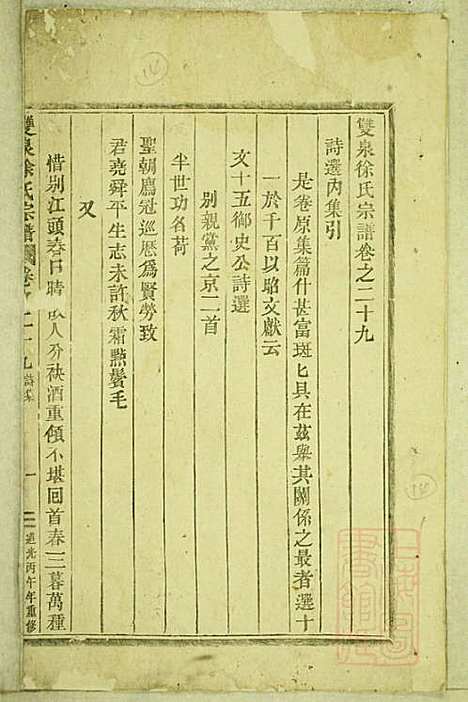 雙泉徐氏宗譜卷之二十九
詩選內集引
是卷原集篇什甚富斑匕具在茲舉其關係之最者選十
一於千百以昭文獻云
文十五御史公詩選
別親黨之京二首
半世功名荷
聖朝廌冠巡厯為賢勞致
君堯舜平生志未許秋霜㸃鬢毛
又
惜別江頭春日晴 人分袂酒重傾不堪回首春三暮萬種
雙泉徐氏宗譜 卷之二十九 一 道光丙午年重修